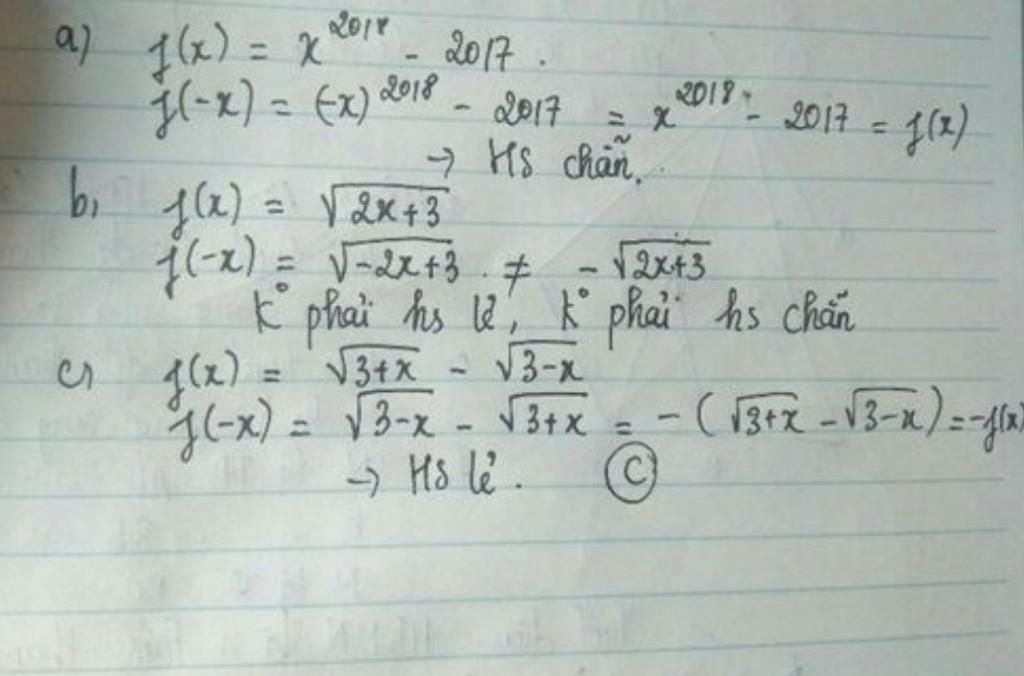 a) f(x) = x^2018 - 2017.
f(-x) = (-x)^2018 - 2017 = x^2018 - 2017 = f(x)
→ HS chẵn.
b, f(x) = √(2x+3)
f(-x) = √(-2x+3) ≠ -√(2x+3)
K° phải hs lẻ, K° phải hs chẵn
c, f(x) = √(3+x) - √(3-x)
f(-x) = √(3-x) - √(3+x) = -(√(3+x) - √(3-x)) = -f(x)
→ HS lẻ. C